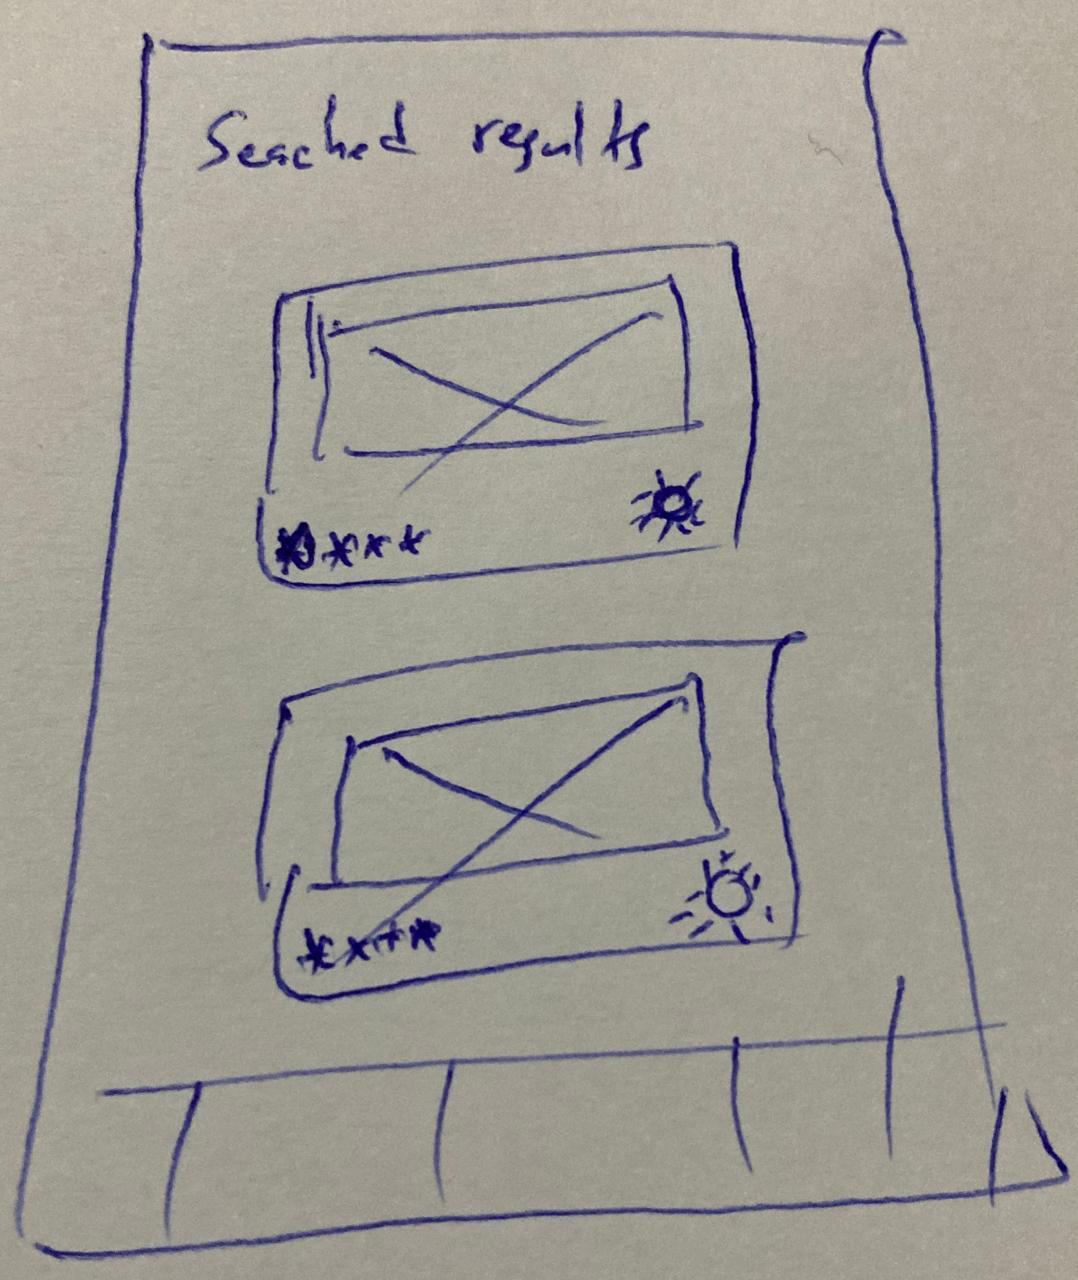 Seached results
****
****